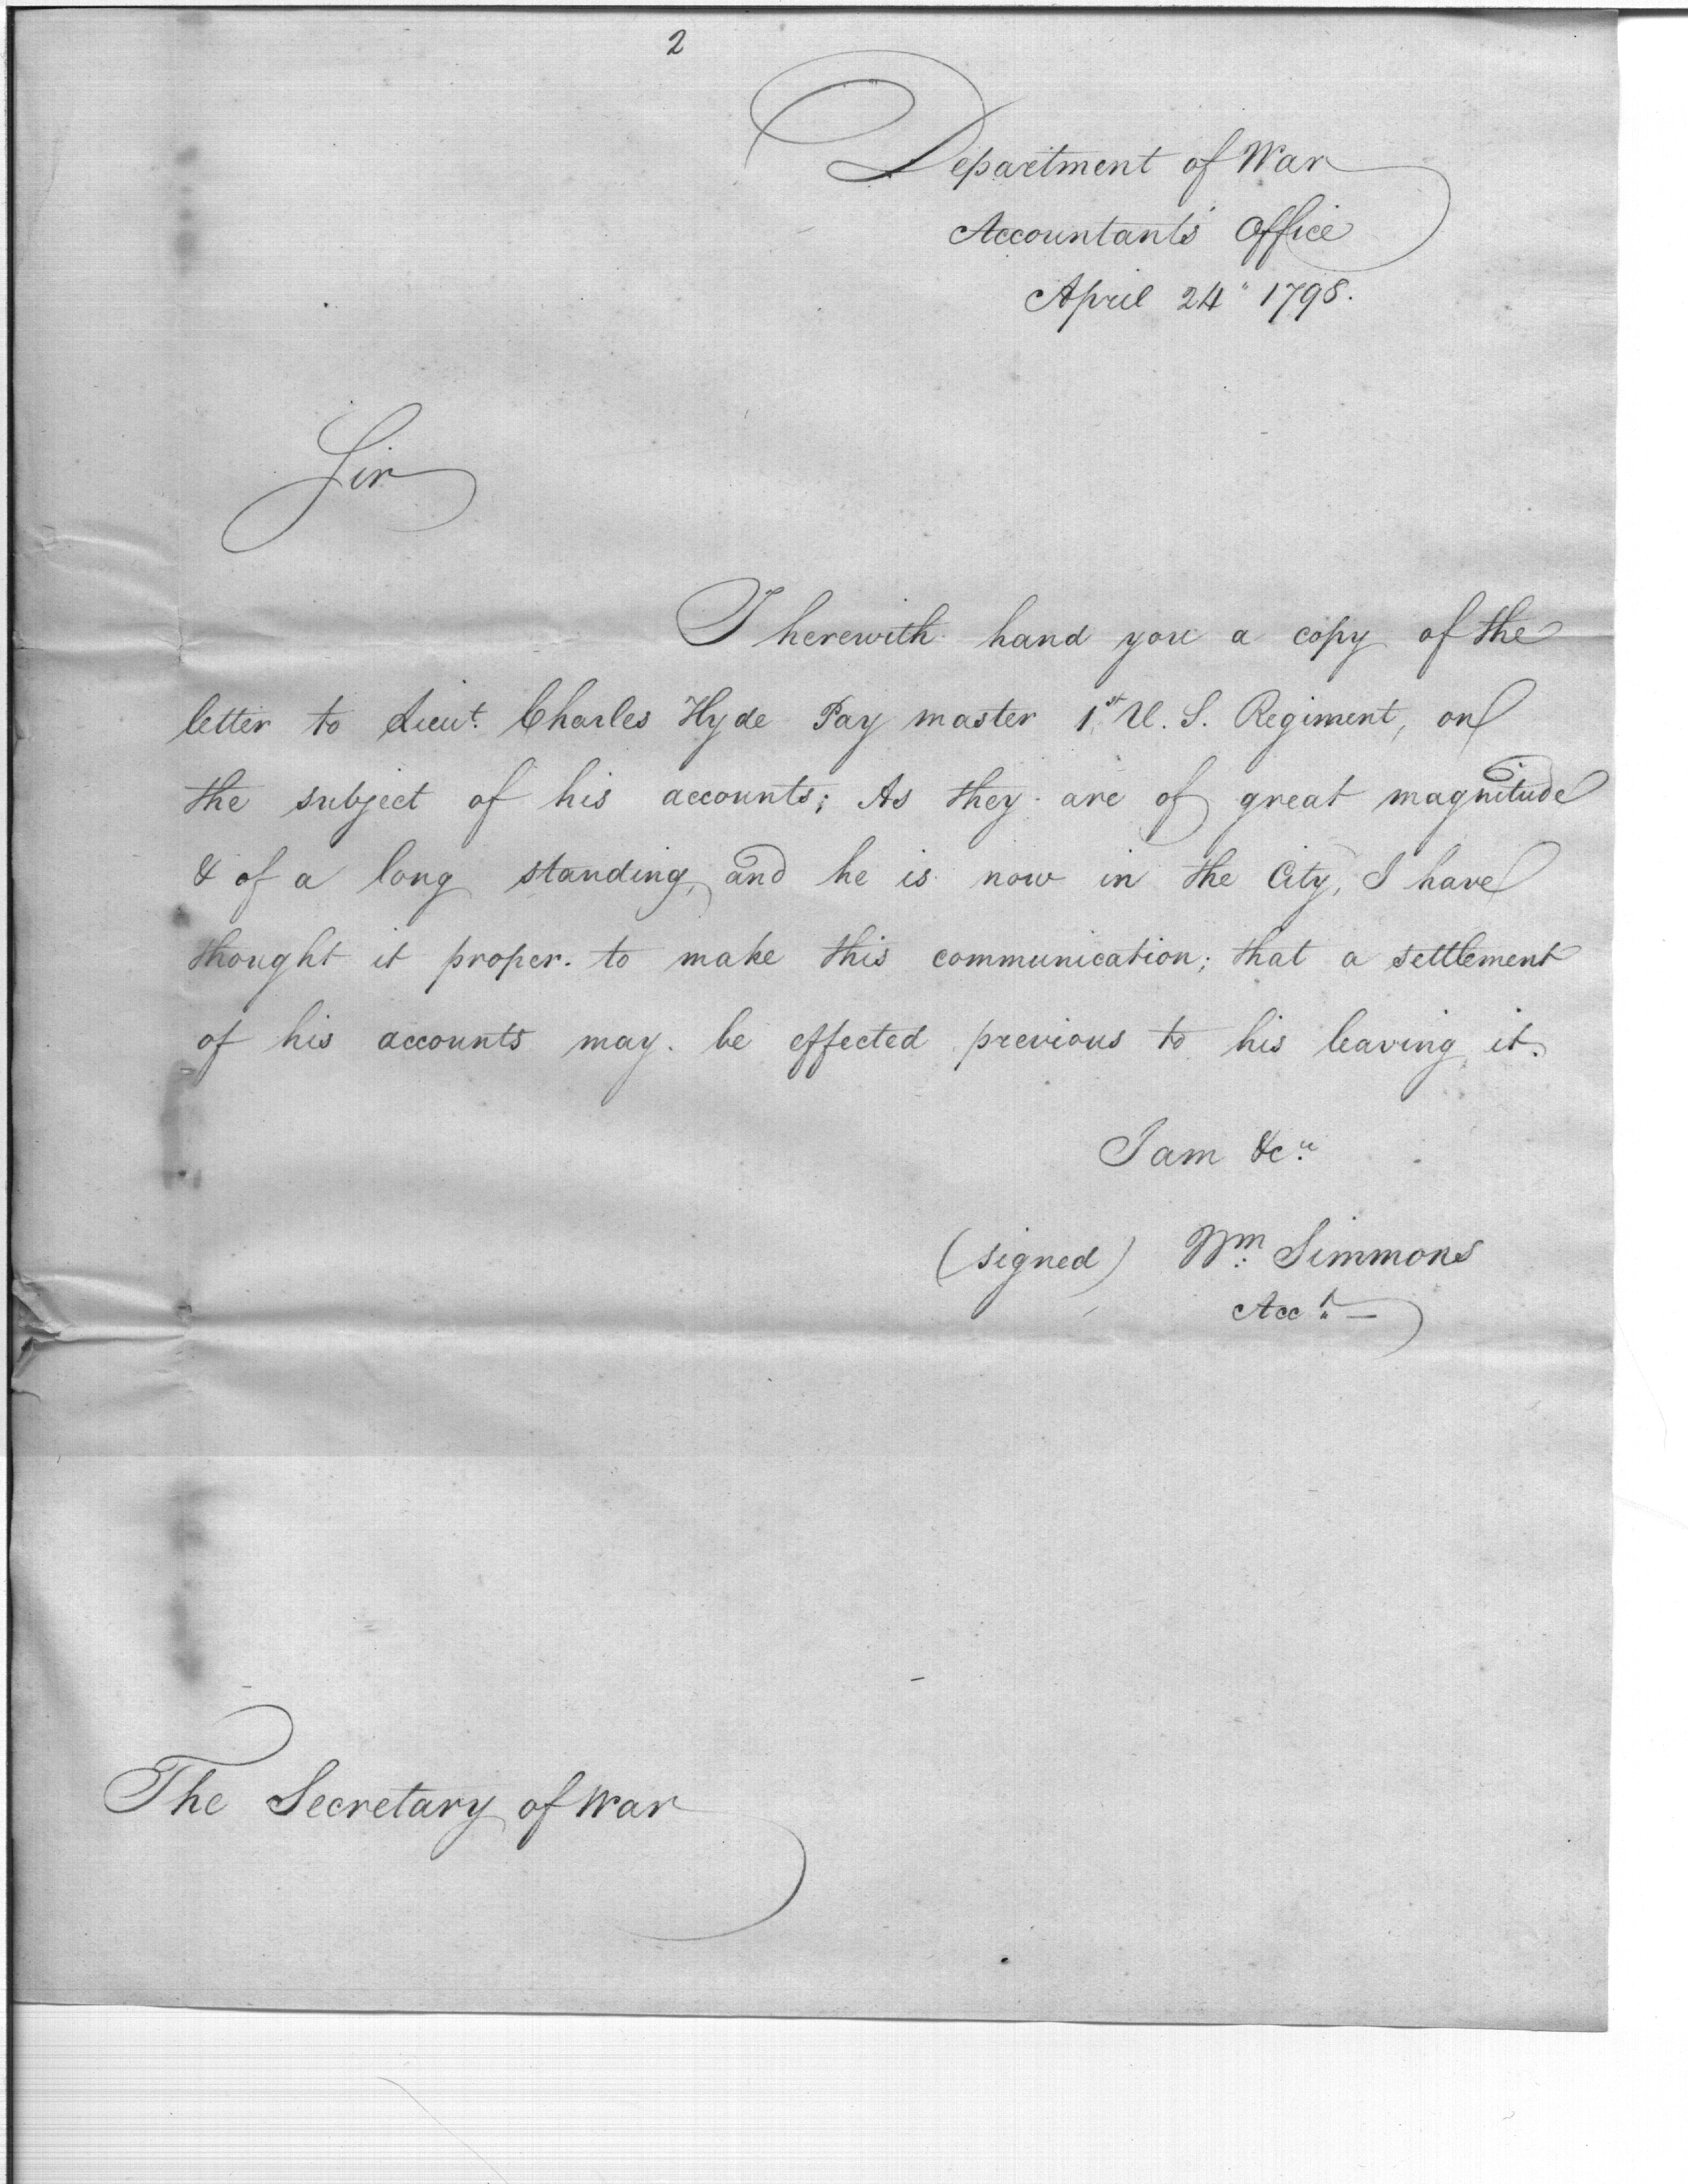 2
Department of War
Accountants' Office
April 24" 1798.
Sir
I herewith hand you a copy of the
letter to Lieut. Charles Hyde Pay master 1st U. S. Regiment, on
the subject of his accounts; As they are of great magnitude
& of a long standing, and he is now in the City, I have
thought it proper. to make this communication; that a settlement
of his accounts may. be effected previous to his leaving it.
I am &c.
(signed) Wm. Simmons
Acct.
The Secretary of War